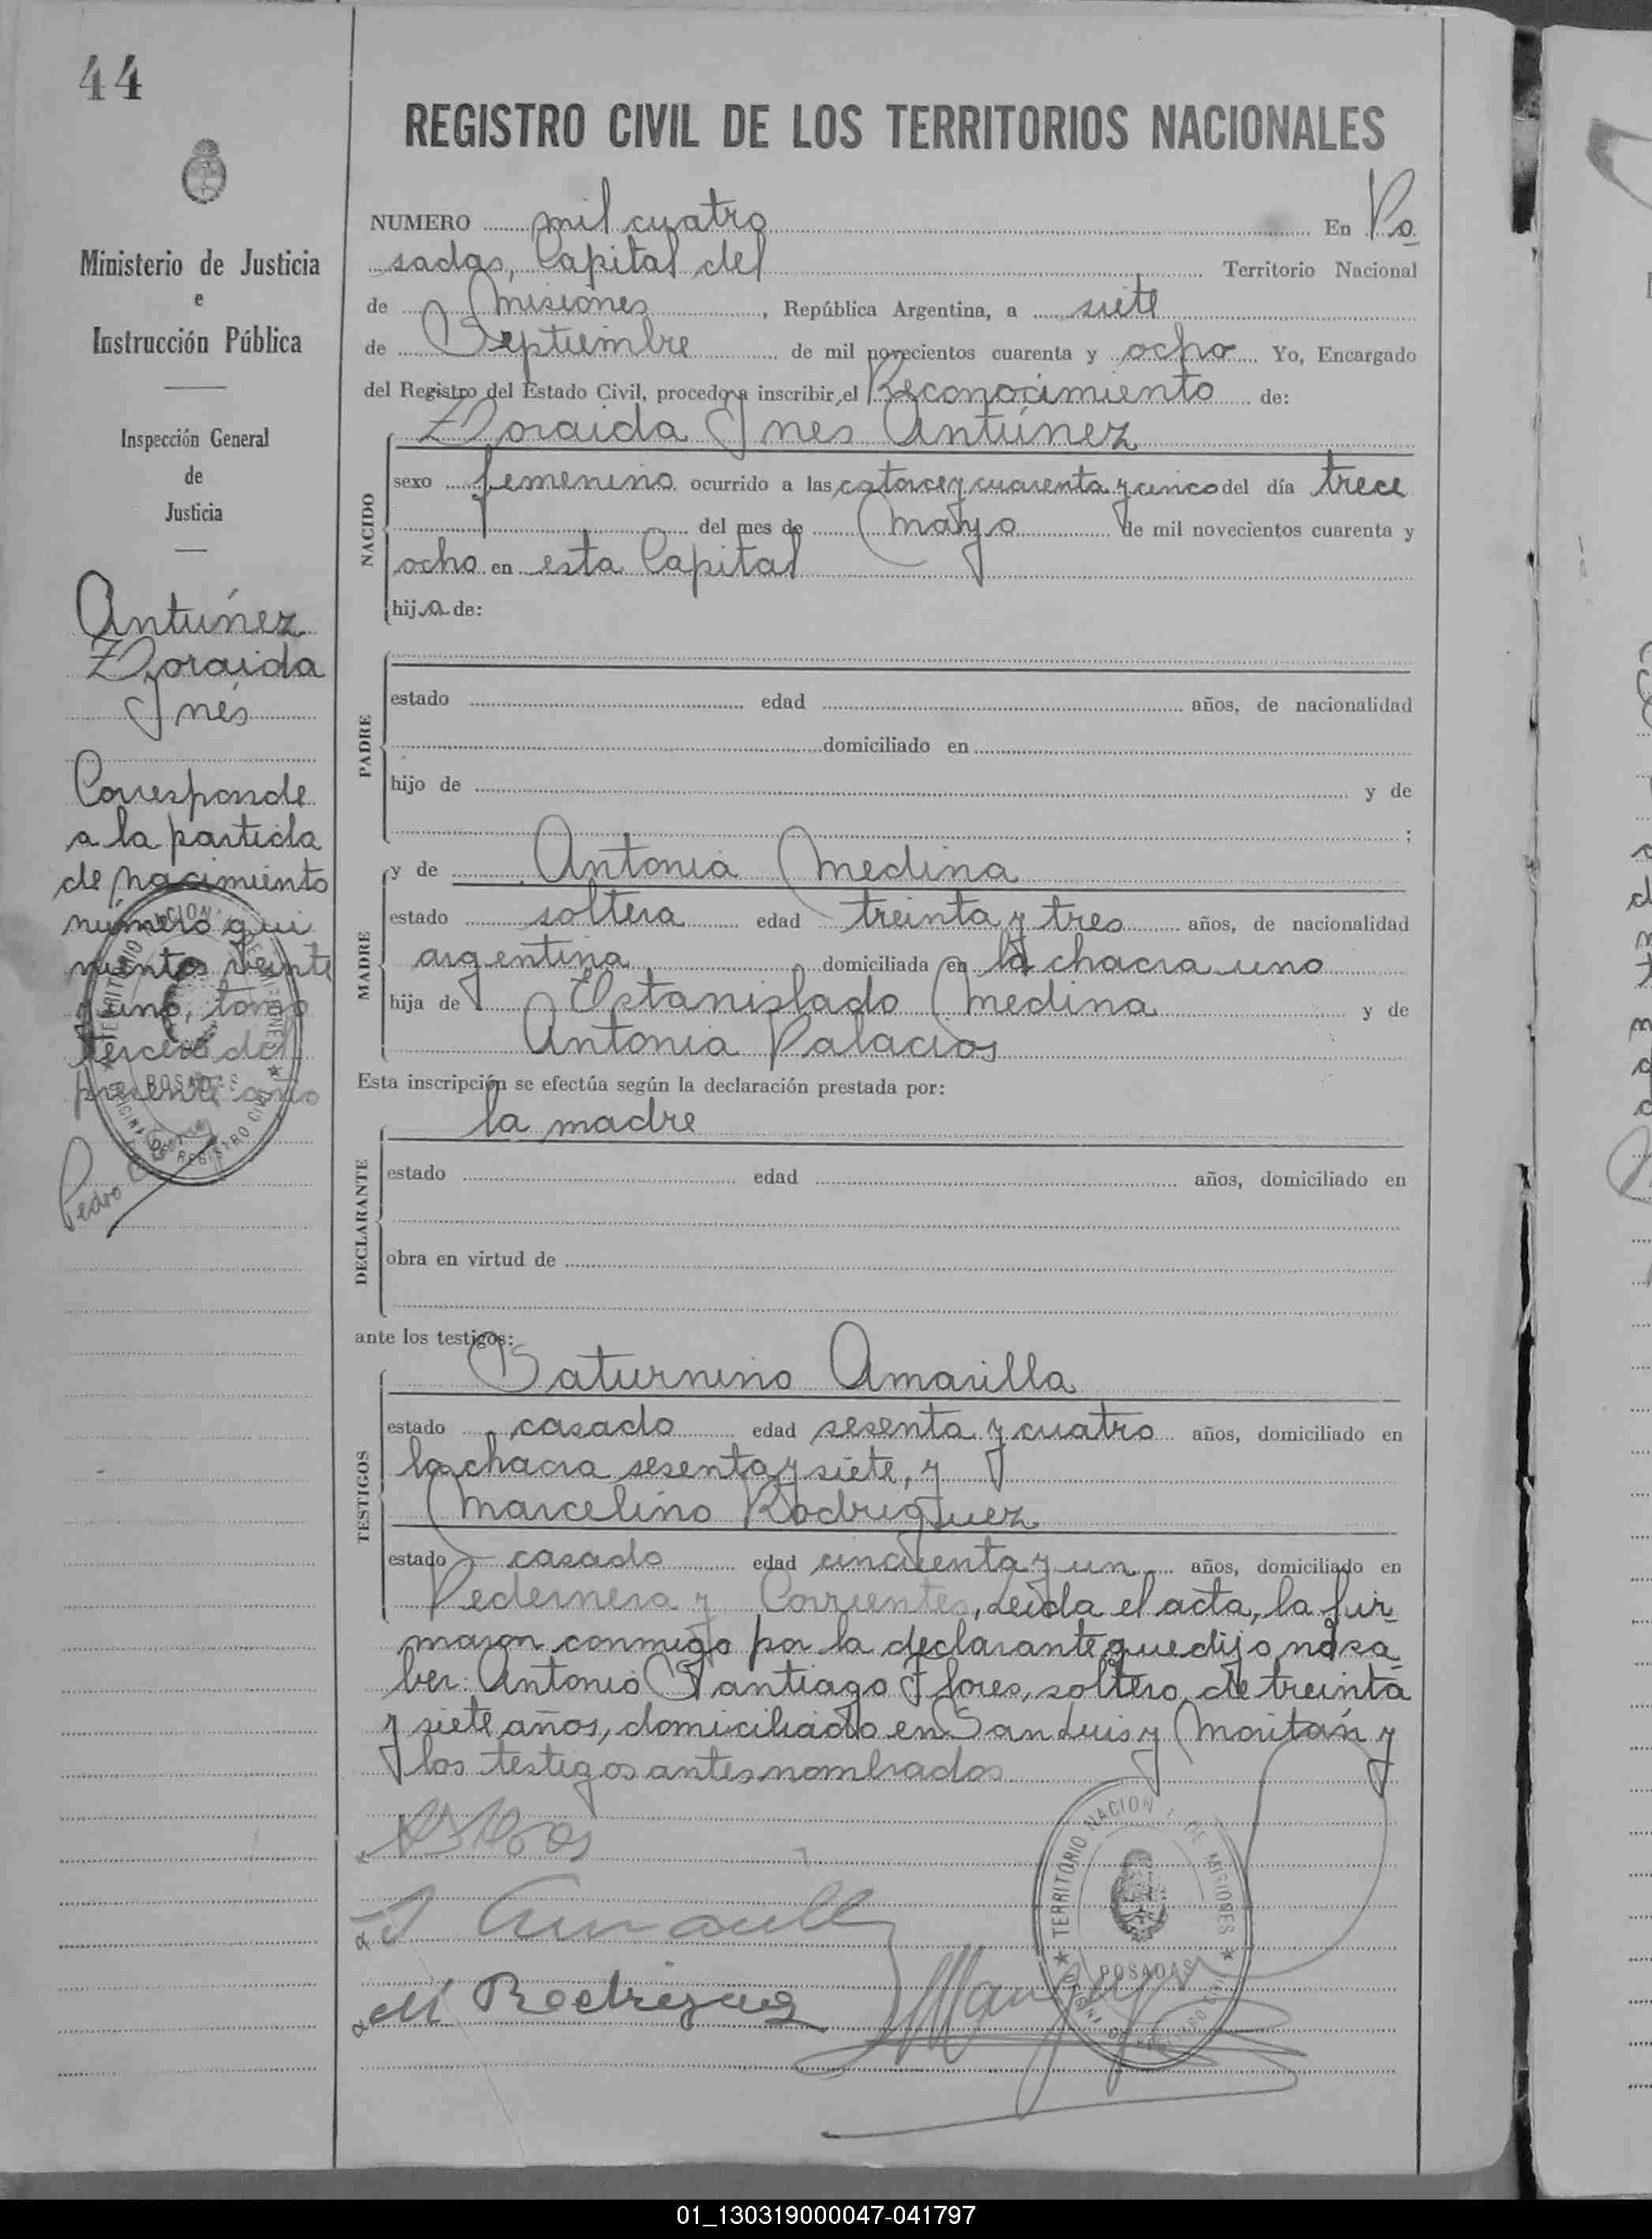 44
REGISTRO CIVIL DE LOS TERRITORIOS NACIONALES
Ministerio de Justicia
e
Instrucción Pública
Inspección General
de
Justicia
Antúnez
Zoraida
Inés
Corresponde
a la partida
de nacimiento
número qui
nientos veinti
uno, tomo
tercero del
presente año
Pedro
NUMERO mil cuatro En Po
sadas, Capital del Territorio Nacional
de Misiones, República Argentina, a siete
de Septiembre de mil novecientos cuarenta y ocho Yo, Encargado
del Registro del Estado Civil, procedo a inscribir el Reconocimiento de:
Zoraida Ines Antúnez
NACIDO
sexo femenino ocurrido a las catorce y cuarenta y cinco del día trece
del mes de Mayo de mil novecientos cuarenta y
ocho en esta Capital
hija de:
PADRE
estado edad años, de nacionalidad
domiciliado en
hijo de y de
;
MADRE
y de Antonia Medina
estado soltera edad treinta y tres años, de nacionalidad
argentina domiciliada en la chacra uno
hija de Estanislado Medina y de
Antonia Palacios
Esta inscripción se efectúa según la declaración prestada por:
la madre
DECLARANTE
estado edad años, domiciliado en
obra en virtud de
ante los testigos:
Saturnino Amarilla
TESTIGOS
estado casado edad sesenta y cuatro años, domiciliado en
la chacra sesenta y siete, y
Marcelino Rodriguez
estado casado edad cincuenta y un años, domiciliado en
Pedernera y Corrientes, Leida el acta, la fir
maron conmigo por la declarante que dijo no sa
ber: Antonio Santiago Flores, soltero, de treinta
y siete años, domiciliado en San Luis y Moritán y
los testigos antes nombrados
S Amarilla
M Rodriguez
TERRITORIO NACIONAL DE MISIONES
POSADAS
OFICINA DE REGISTRO CIVIL
01_130319000047-041797